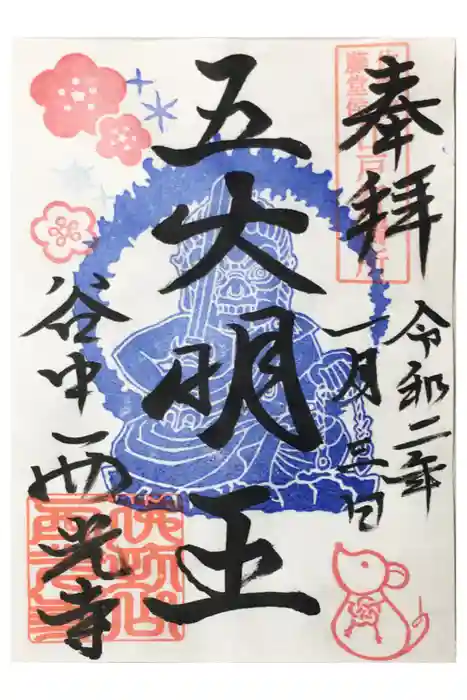 奉拝
令和二年
一月三日
五大明王
谷中
西光寺